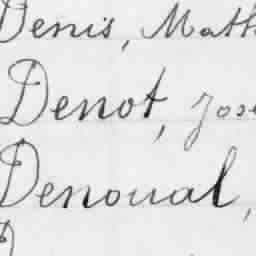 Denis, Math
Denot, Jose
Denoual,